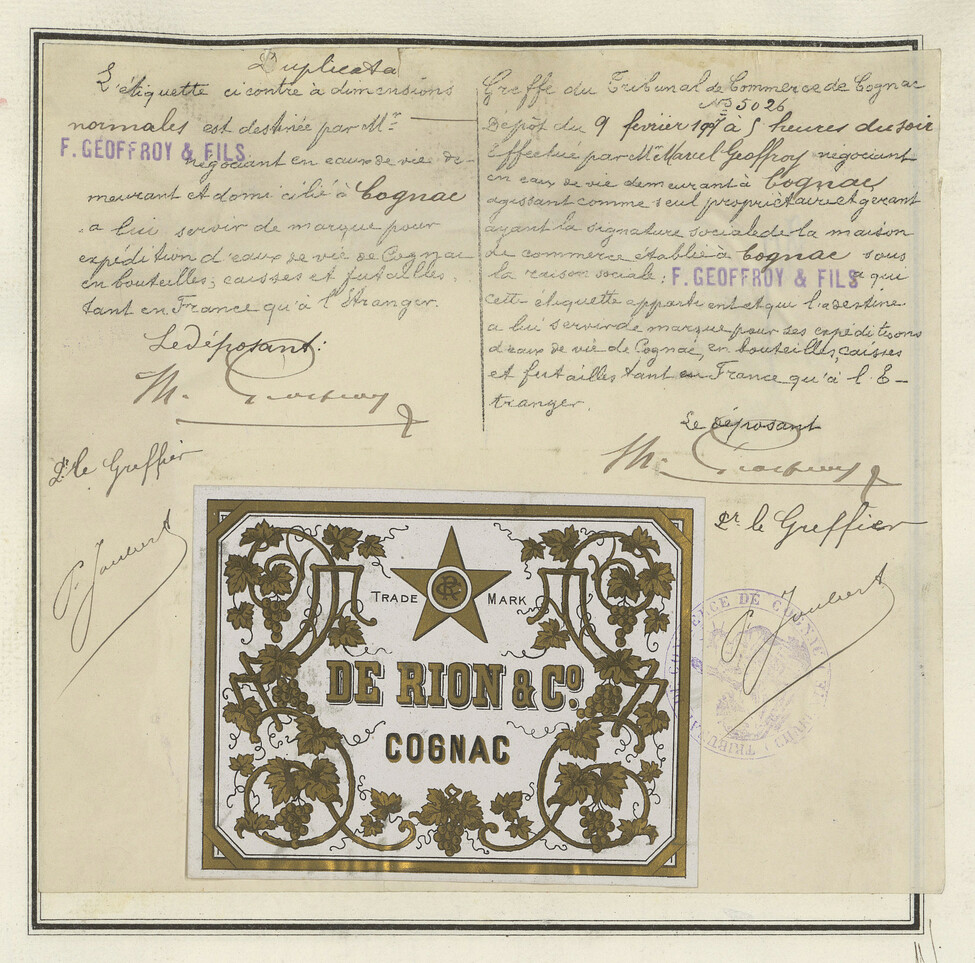 Duplicata
L'étiquette ci contre à dimensions
normales est destinée par Mr
F. GEOFFROY & FILS
négociant en eaux de vie de-
meurant et domicilié à Cognac
a lui servir de marque pour
expédition d'eaux de vie de Cognac
en bouteilles, caisses et futailles
tant en France qu'à l'Etranger.
Le déposant:
M. Geoffroy
Pr le Greffier
P. Joubert
Greffe du Tribunal de Commerce de Cognac
No 5026
Dépôt du 9 février à 5 heures du soir
Effectué par Mr Marcel Geoffroy négociant
en eaux de vie demeurant à Cognac,
agissant comme seul propriétaire et gérant
ayant la signature sociale de la maison
de commerce établie à Cognac sous
la raison sociale: F. GEOFFROY & FILS a qui
cette étiquette appartient et qui l'a destine
a lui servir de marque pour ses expéditions
d'eaux de vie de Cognac, en bouteilles, caisses
et futailles tant en France qu'à l'E-
tranger.
Le déposant
M. Geoffroy
pr le Greffier
P. Joubert
TRADE MARK
DE RION & Co.
COGNAC
TRIBUNAL DE COGNAC